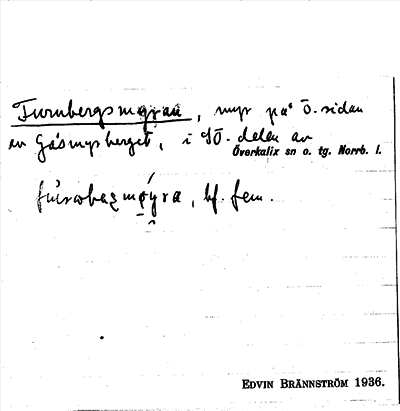 Furnbergsmyran, myr på Ö. sidan
av Gåsmyrberget, i SÖ. delen av
Överkalix sn o. tg. Norrb. l.
bf. fem.
EDVIN BRÄNNSTRÖM 1936.